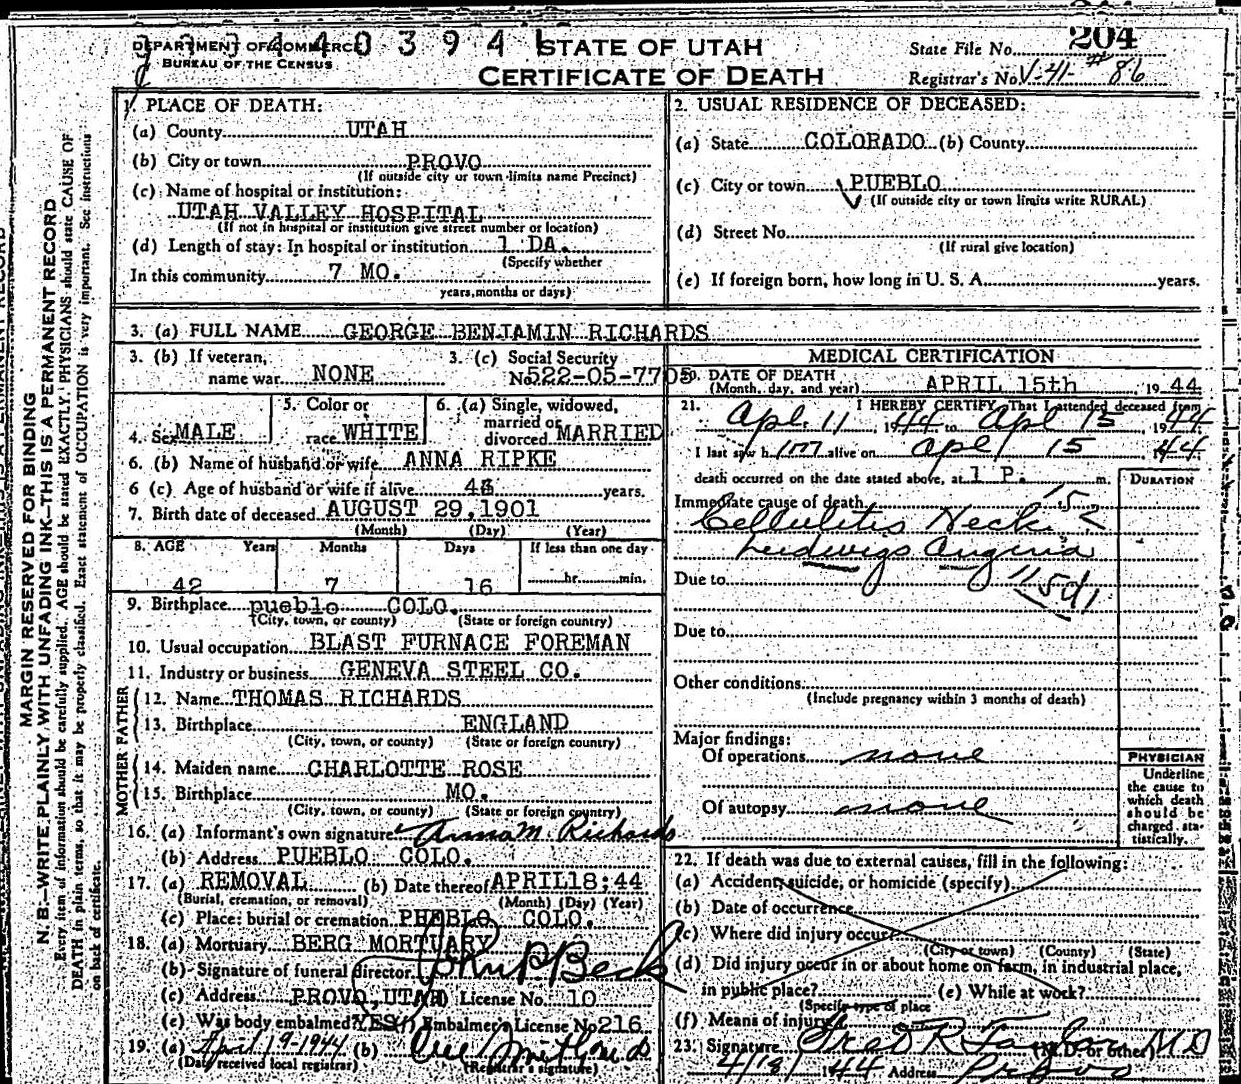 DEPARTMENT OF COMMERCE
BUREAU OF THE CENSUS
STATE OF UTAH
CERTIFICATE OF DEATH
State File No. 204
Registrar's No. V-41-#86
MARGIN RESERVED FOR BINDING
N. B.—WRITE PLAINLY, WITH UNFADING INK—THIS IS A PERMANENT RECORD
Every item of information should be carefully supplied. AGE should be stated EXACTLY. PHYSICIANS should state CAUSE OF
DEATH in plain terms, so that it may be properly classified. Exact statement of OCCUPATION is very important. See instructions
on back of certificate.
1. PLACE OF DEATH:
(a) County UTAH
(b) City or town PROVO
(If outside city or town limits name Precinct)
(c) Name of hospital or institution:
UTAH VALLEY HOSPITAL
(If not in hospital or institution give street number or location)
(d) Length of stay: In hospital or institution 1 DA.
(Specify whether
In this community 7 MO.
years, months or days)
2. USUAL RESIDENCE OF DECEASED:
(a) State COLORADO (b) County
(c) City or town PUEBLO
(If outside city or town limits write RURAL)
(d) Street No.
(If rural give location)
(e) If foreign born, how long in U. S. A. years.
3. (a) FULL NAME GEORGE BENJAMIN RICHARDS
3. (b) If veteran,
name war NONE
3. (c) Social Security
No. 522-05-7705
4. Sex MALE
5. Color or
race WHITE
6. (a) Single, widowed,
married or
divorced MARRIED
6. (b) Name of husband or wife ANNA RIPKE
6 (c) Age of husband or wife if alive years.
7. Birth date of deceased AUGUST 29, 1901
(Month) (Day) (Year)
8. AGE Years Months Days If less than one day
42 7 16 hr. min.
9. Birthplace pueblo COLO.
(City, town, or county) (State or foreign country)
10. Usual occupation BLAST FURNACE FOREMAN
11. Industry or business GENEVA STEEL CO.
FATHER
12. Name THOMAS RICHARDS
13. Birthplace ENGLAND
(City, town, or county) (State or foreign country)
MOTHER
14. Maiden name CHARLOTTE ROSE
15. Birthplace MO.
(City, town, or county) (State or foreign country)
16. (a) Informant's own signature Anna M. Richards
(b) Address PUEBLO COLO.
17. (a) REMOVAL (b) Date thereof APRIL 18; 44
(Burial, cremation, or removal) (Month) (Day) (Year)
(c) Place: burial or cremation PUEBLO COLO.
18. (a) Mortuary BERG MORTUARY
(b) Signature of funeral director John P Beck
(c) Address PROVO, UTAH License No. 10
(e) Was body embalmed? YES Embalmer's License No. 216
19. (a) April 19-1944 (b)
(Date received local registrar) (Registrar's signature)
MEDICAL CERTIFICATION
20. DATE OF DEATH
(Month, day, and year) APRIL 15th 19 44
21. I HEREBY CERTIFY, That I attended deceased from
Apl. 11 1944 to Apl 15, 1944.
I last saw h im alive on Apl 15 44
death occurred on the date stated above, at 1 P. m.
DURATION
Immediate cause of death
Cellulitis Neck
Ludwigs Angina
Due to
115d1
Due to
Other conditions
(Include pregnancy within 3 months of death)
Major findings:
Of operations none
Of autopsy none
PHYSICIAN
Underline
the cause to
which death
should be
charged sta-
tistically.
22. If death was due to external causes, fill in the following:
(a) Accident, suicide, or homicide (specify)
(b) Date of occurrence
(c) Where did injury occur?
(City or town) (County) (State)
(d) Did injury occur in or about home on farm, in industrial place,
in public place? (e) While at work?
(Specify type of place
(f) Means of injury
23. Signature Fred R Taylor M D
(M. D. or other)
4/18/ 1944 Address Provo